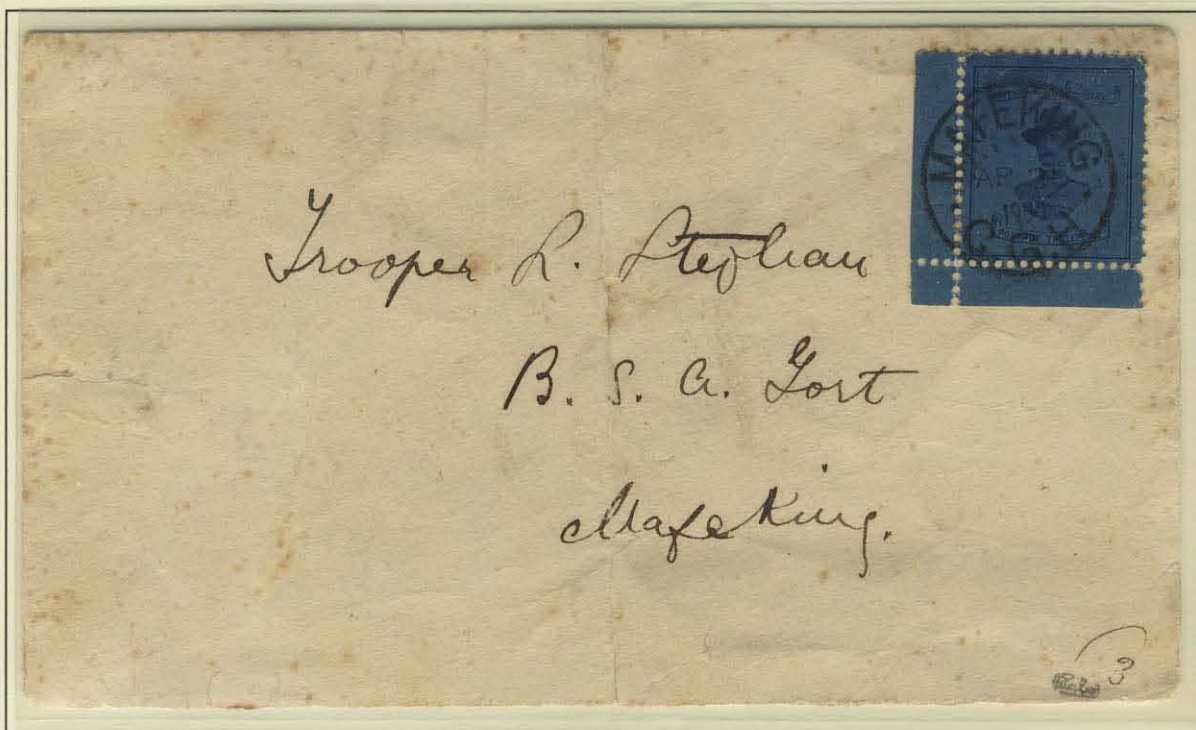 MAFEKING
AP
1900
C.G.H
Trooper L. Stephan
B. S. A. Fort
Mafeking.
3